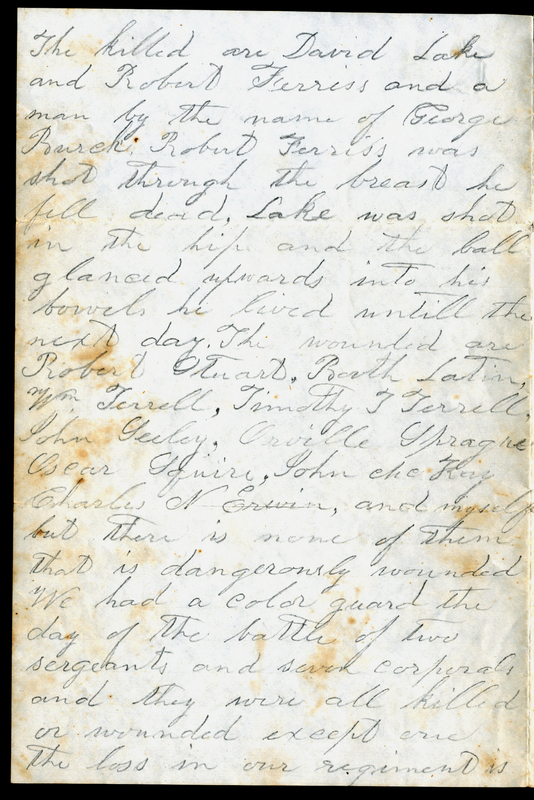 The killed are David Lake
and Robert Ferriss and a
man by the name of George
Burck. Robert Ferriss was
shot through the breast he
fell dead. Lake was shot
in the hip and the ball
glanced upwards into his
bowels he lived untill the
next day. The wounded are
Robert Stuart, Booth Latin,
Wm Terrell, Timothy T Terrell,
John Seeley, Orville Sprague
Oscar Squire, John Mc Kay
Charles N Erwin, and myself
but there is none of them
that is dangerously wounded
We had a color guard the
day of the battle of two
sergeants and seven corporals
and they were all killed
or wounded except one
the loss in our regiment is